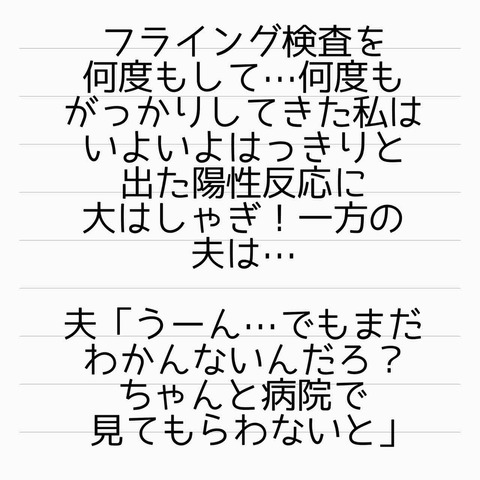 フライング検査を
何度もして…何度も
がっかりしてきた私は
いよいよはっきりと
出た陽性反応に
大はしゃぎ！一方の
夫は…
夫「うーん…でもまだ
わかんないんだろ？
ちゃんと病院で
見てもらわないと」